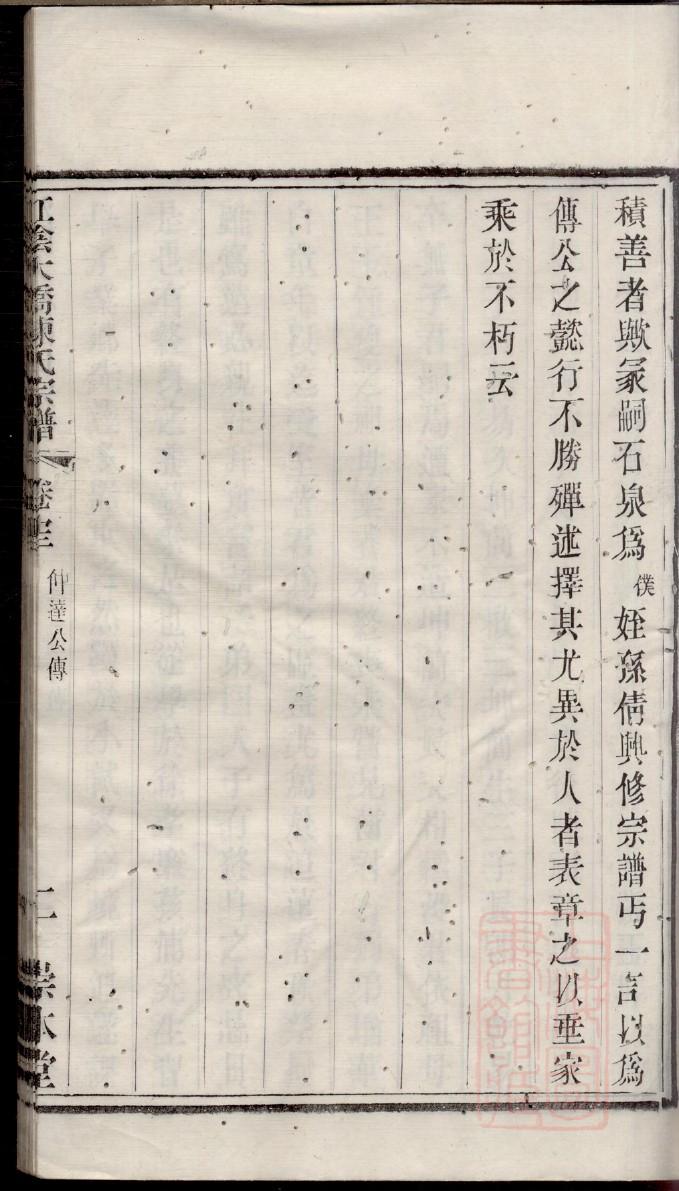 積善者歟冢嗣石泉為僕姪孫倩興修宗譜丐一言以為
傳公之懿行不勝殫述擇其尤異於人者表章之以垂家
乘於不朽云
江陰大橋陳氏宗譜 卷 仲達公傳 二 崇本堂